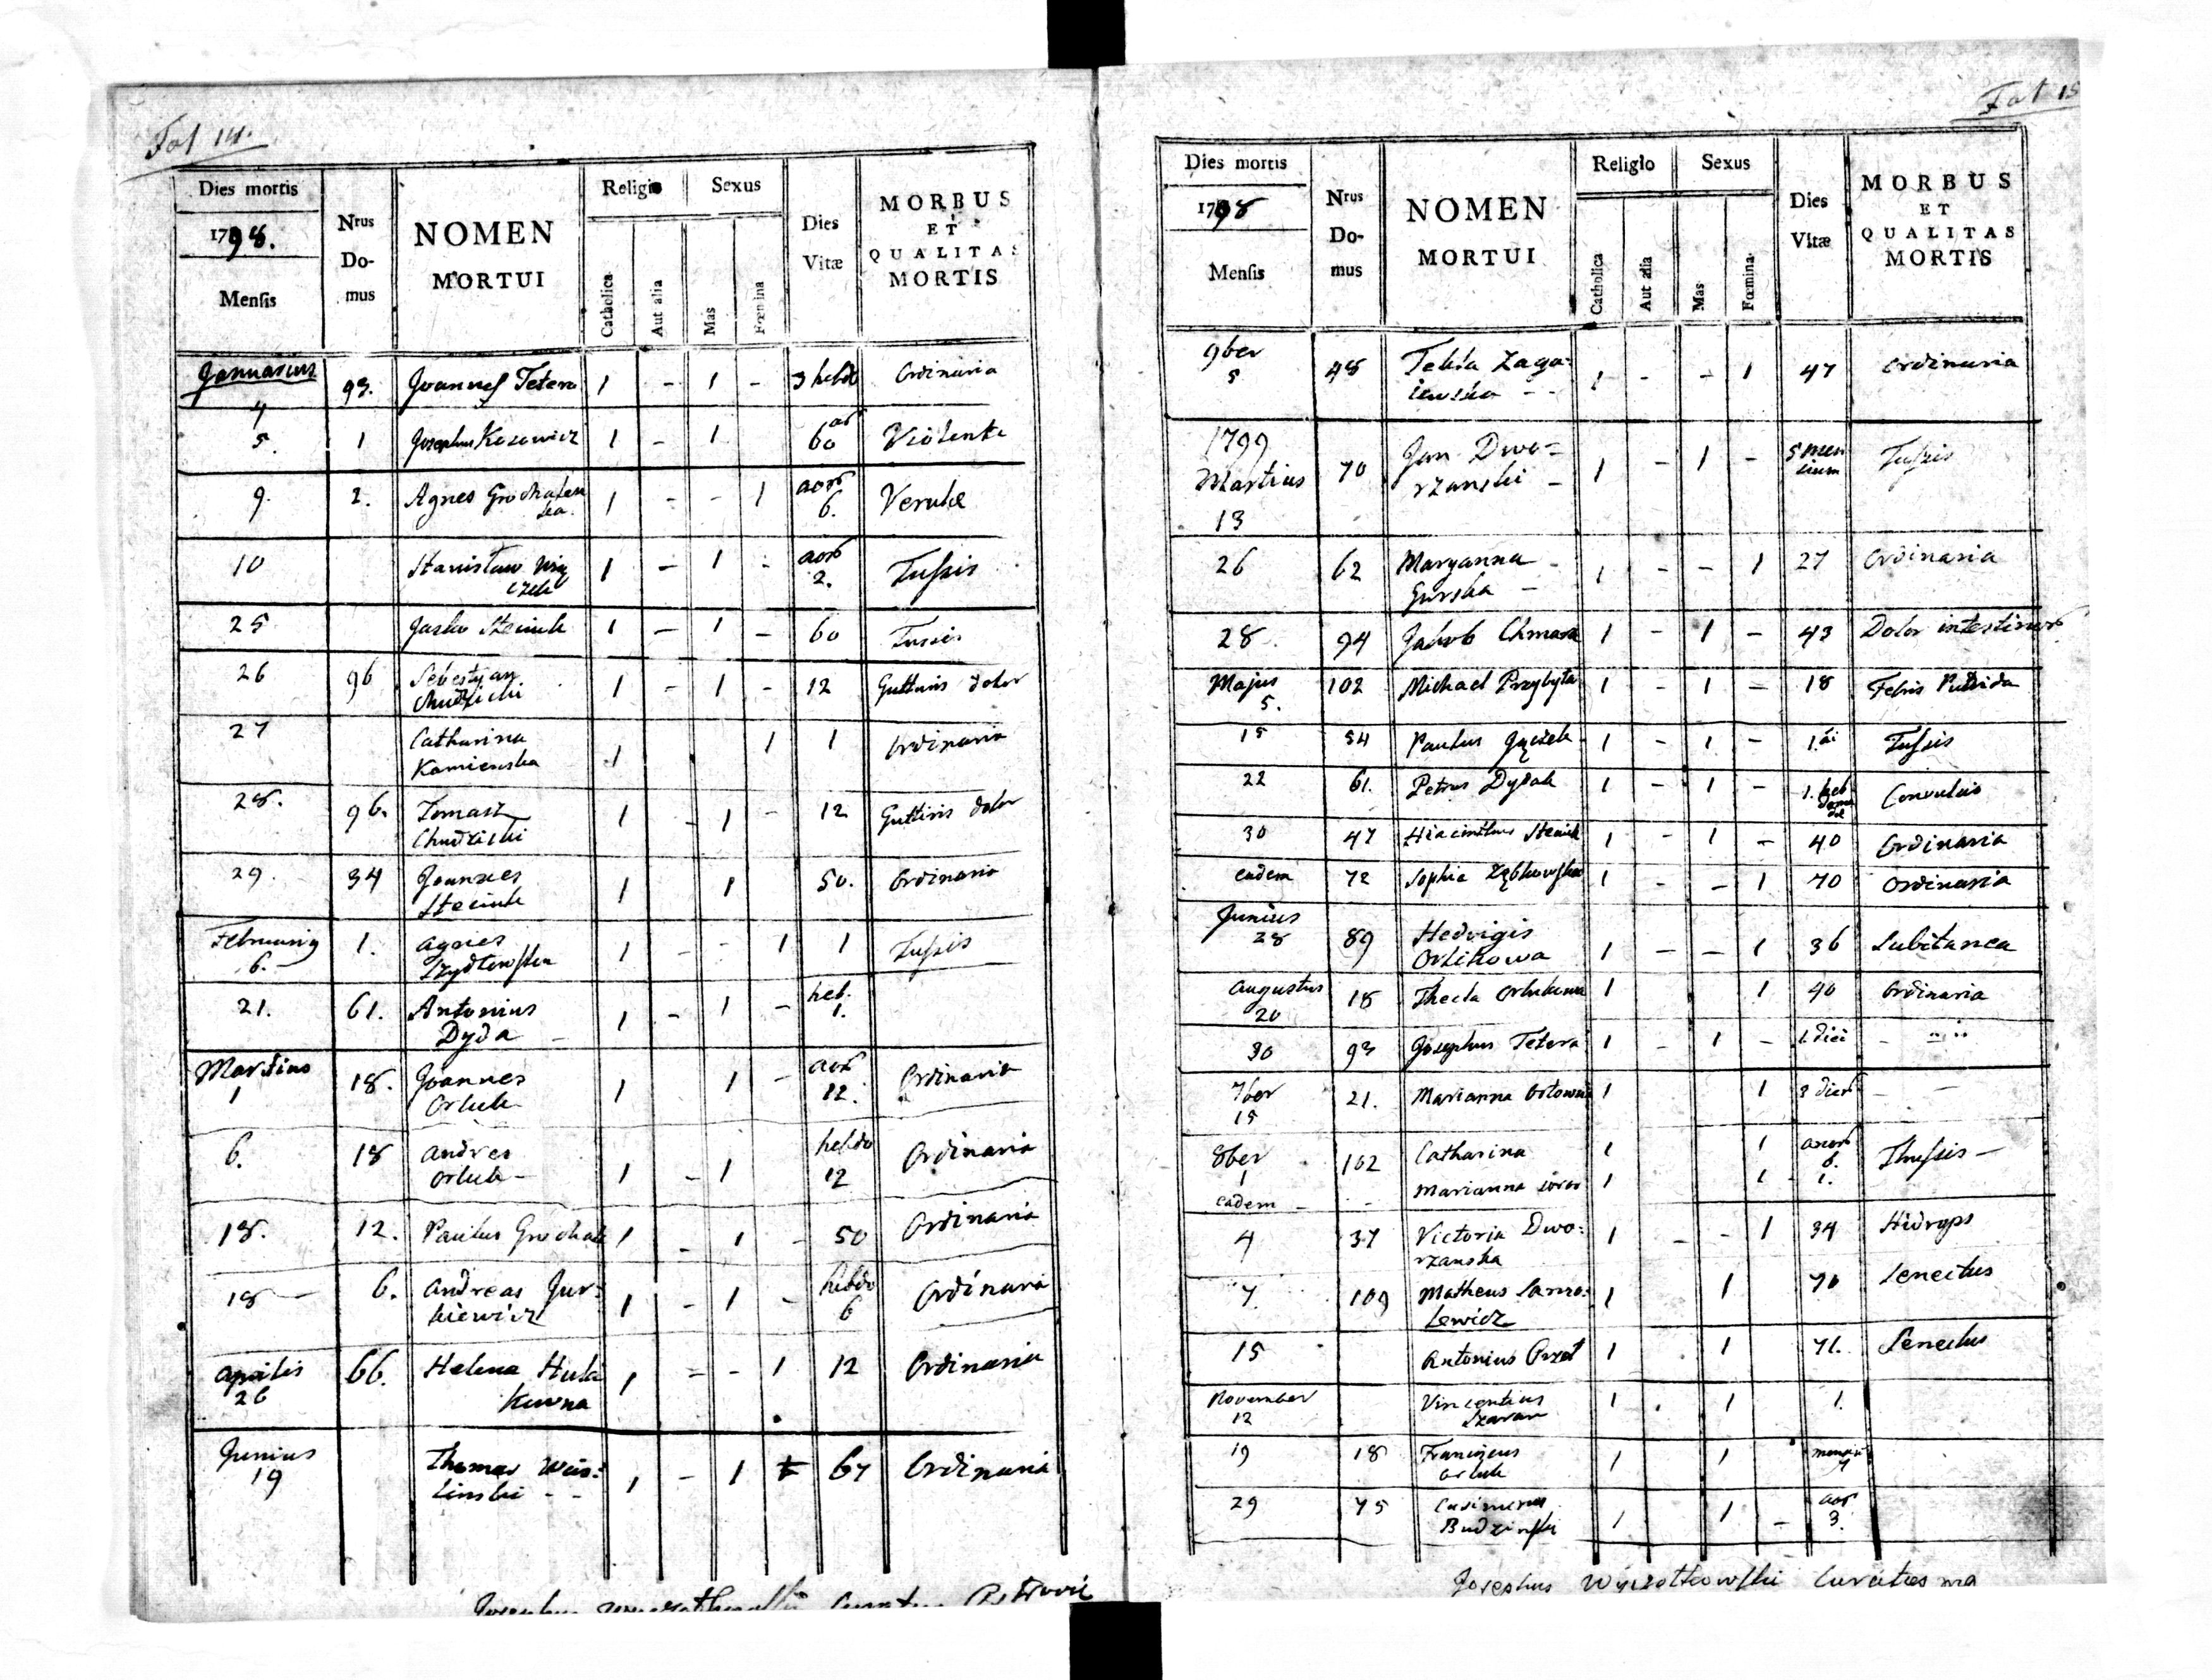 Fol 14.
Dies mortis
1798.
Mensis
Nrus
Do-
mus
NOMEN
MORTUI
Religio
Catholica
Aut alia
Sexus
Mas
Fœmina
Dies
Vitæ
MORBUS
ET
QUALITAS
MORTIS
Januarius
4 93. Joannes Tetera 1 - 1 - 3 hebd Ordinaria
5. 1 Josephus Kosowicz 1 - 1 60 Violenta
9. 2. Agnes Grochalen
ska 1 - - 1 6. Verulæ
10 Stanisław
1 - 1 - 2. Tussis
25 Jasko Steciuk 1 - 1 - 60 Tussis
26 96 Sebestyan
Chudzicki 1 - 1 - 12 Gutturis dolor
27 Catharina
Kamienska 1 1 1 Ordinaria
28. 96. Tomasz
Chudzicki 1 - 1 - 12 Gutturis dolor
29. 34 Joannes
Steciuk 1 1 50. Ordinaria
Februarig
6. 1. Agnes
Szydlowska 1 - - 1 1 Tussis
21. 61. Antonius
Dyda - 1 - 1 - heb. 1.
Martius
1 18. Joannes
Orluk 1 1 - 12. Ordinaria
6. 18 Andres
Orluk - 1 - 1 hebdo 12 Ordinaria
18. 12. Paulus Grochal 1 - 1 - 50 Ordinaria
18 - 6. Andreas Jur=
kiewicz 1 - 1 - hebdo 6 Ordinaria
Aprilis
26 66. Helena Hula
Kuwna 1 - - 1 12 Ordinaria
Junius
19 Thomas Wis=
linski - - 1 - 1 67 Ordinaria
Josephus Wyczotkowski Curatus
Fol 15
Dies mortis
1798
Mensis
Nrus
Do-
mus
NOMEN
MORTUI
Religio
Catholica
Aut alia
Sexus
Mas
Fœmina
Dies
Vitæ
MORBUS
ET
QUALITAS
MORTIS
9ber
5 48 Tekla Zaga=
iewska - - 1 - - 1 47 Ordinaria
1799
Martius
13 70 Jan Dwo=
rzanski - 1 - 1 - 5 men
sium Tussis
26 62 Maryanna -
Gurska - 1 - - 1 27 Ordinaria
28. 94 Jakob Chmara 1 - 1 - 43 Dolor intestinor
Majus
5. 102 Michael Przybyta 1 - 1 - 18 Febris Putrida
15 54 Paulus 1 - 1 - Tussis
22 61. Petrus Dydak 1 - 1 - 1. heb
doma
dæ Convulsio
30 47 Hiacinthus Steciuk 1 - 1 - 40 Ordinaria
eadem 72 Sophia Ząbkowska 1 - - 1 70 Ordinaria
Junius
28 89 Hedvigis
Orlikowa 1 - - 1 36 Subitanea
Augustus
20 18 Thecla Orlukowa 1 1 40 Ordinaria
30 93 Josephus Tetera 1 - 1 - 1 diei -
7ber
15 21. Marianna Orlowna 1 1 3 dier - -
8ber
1 102 Catharina 1 1 6. Thussis -
eadem - - - Marianna soror 1 1 - 1.
4 37 Victoria Dwo=
rzanska 1 - - 1 34 Hidrops
7. 109 Matheus Samo=
Lewicz 1 1 70 Senectus
15 Antonius 1 1 71. Senectus
November
12 Vincentius
1 1 1.
19 18 Franciscus
Orluk 1 1
29 75 Casimirus
Budzinski 1 1 - 3.
Josephus Wyczotkowski Curatus